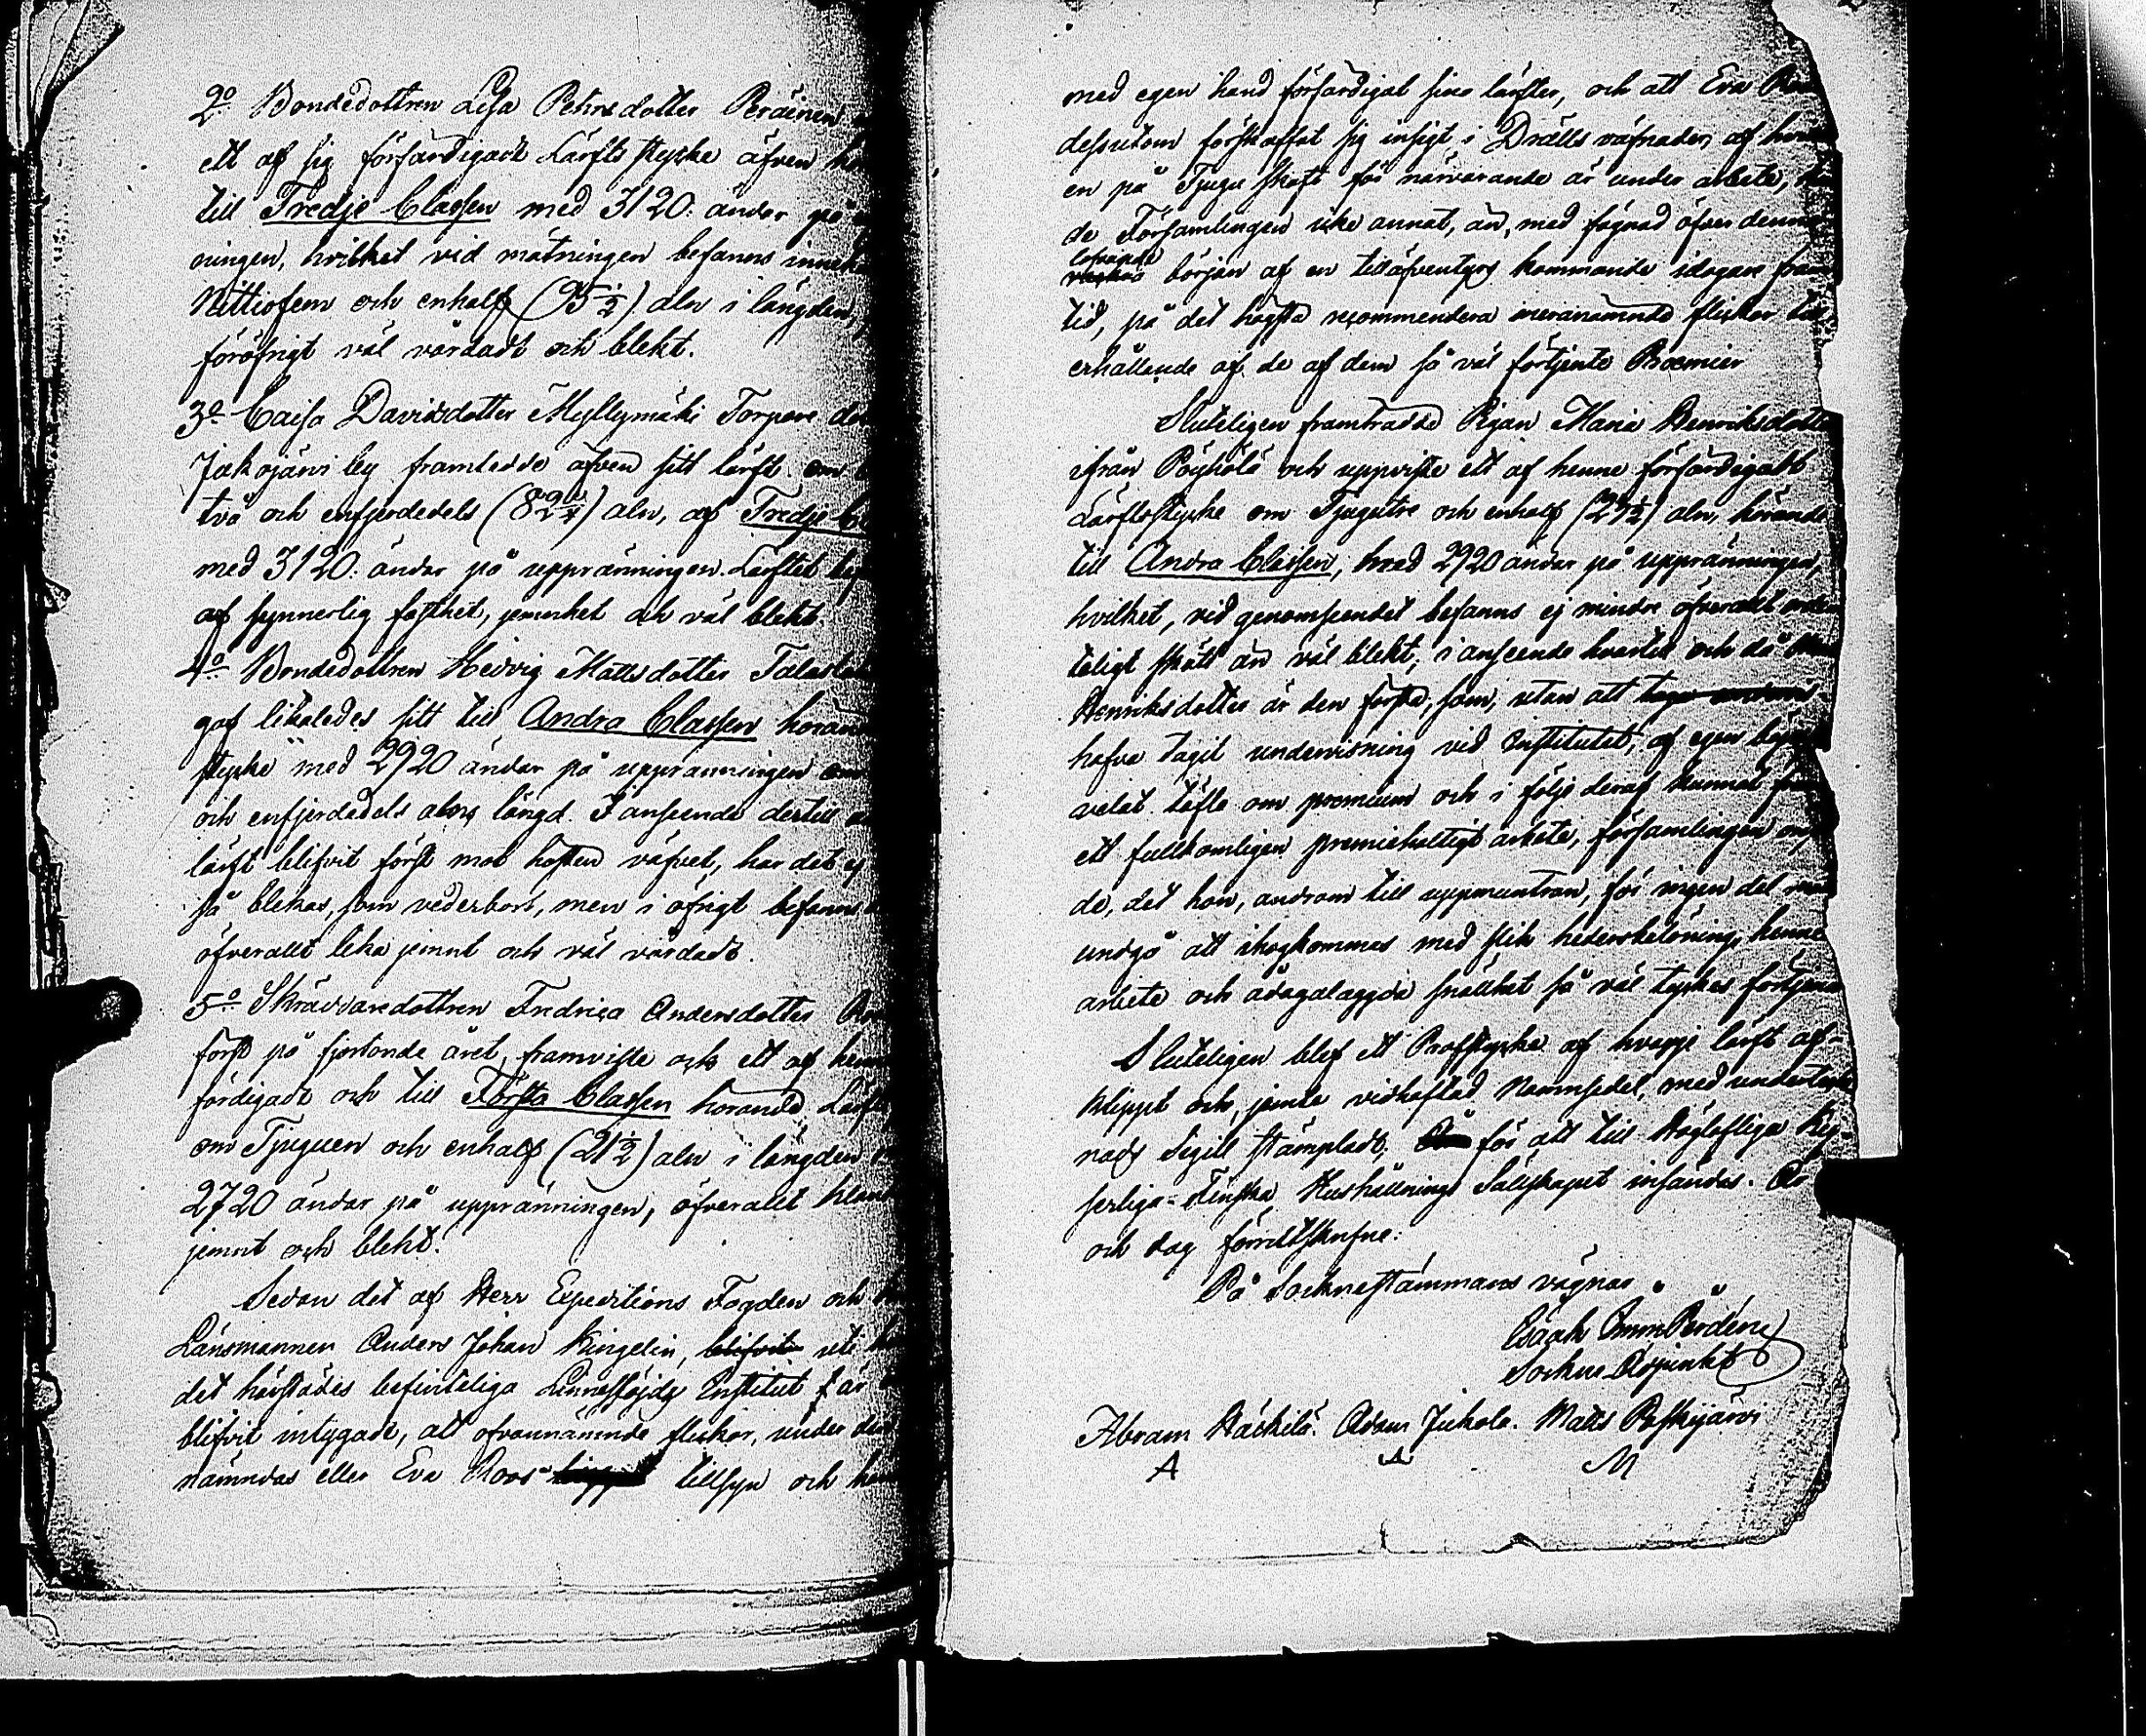 2o Bondedottren Lisa Pehrsdotter Peräinen
ett af sig förfärdigadt Lärfts stycke äfven
till Tredje Classen med 3120. ändar på
ningen, hvilket vid mätningen befanns inneh
Nittiofem och enhalf (95 1/2) aln i längden,
föröfrigt väl vårdadt och blekt.
3o Caisa Davidsdotter Myllymäki Torpare dot
Jakojärvi by framtedde äfven sitt lärft om
två och enfjerdedels (82 1/4) aln, af Tredje Cl
med 3120. ändar på uppränningen. Lärftet
af synnerlig fasthet, jemnhet och väl blekt
4o Bondedottren Hedvig Mattsdotter
gaf likaledes sitt till Andra Classen höran
stycke med 2920 ändar på uppränningen om
och enfjerdedels alns längd. I anseende dertill
lärft blifvit först mot hösten väfvet, har det ej
så blekas, som vederbort, men i öfrigt befanns
öfverallt lika jemnt och väl vårdadt.
5o Skräddaredottren Fredrica Andersdotter
först på fjortonde året, framviste ock ett af hen
färdigadt och till Första Classen hörande Lärft
om Tjuguen och enhalf (21 1/2) aln i längden
2720 ändar på uppränningen, öfverallt
jemnt och blekt.
Sedan det af Herr Expeditions Fogden och
Länsmannen Anders Johan Ringelin, blifvit uti
det härstädes befinteliga Linneslöjds Institut f är
blifvit intygadt, att ofvannämnde flickor, under
nämndas eller Eva Roos tillsyn och
med egen hand förfärdigat sina lärfter, och att Eva
dessutom förskaffat sig insigt i Drälls väfnader, af
en på Tjugu skaft för närvarande är under arbete,
de Församlingen icke annat, än, med fägnad öfver denna
lofvande
början af en tilläfventyrs kommande idogare fram
tid, på det högsta recommendera meranämnde flickor till
erhållande af de af dem så väl förtjente Præmier
Sluteligen framträdde Pigan Maria Henriksdotter
ifrån Pöyhölä och uppviste ett af henne förfärdigadt
Lärftsstycke om Tjugutre och enhalf aln, hörande
till Andra Classen, med 2920 ändar på uppränningen,
hvilket, vid genomseendet befanns ej mindre öfverallt orden
teligt skött än väl blekt, i anseende hvartill och då
Henriksdotter är den första, som, utan att
hafva tagit undervisning vid Institutet, af egen
velat täfla om premium och i följe deraf kunnat fram
ett fullkomligen premiehaltigt arbete, församlingen
de, det hon, androm till uppmuntran, för ingen del
undgå att ihogkommas med slik hedersbelöning, henne
arbete och ådagalaggda snällhet så väl tyckes förtjena
Sluteligen blef ett Profstycke af hvarje lärft af-
klippt och, jemte vidhäftad Namnsedel, med undertek
nads Sigill stämpladt, för att till Höglofliga Kej-
serliga Finska Hushållnings Sälskapet insändas. År
och dag förutskrifne:
På Sockneståmmans vägnar
Sockne
Abram Häckilä. Adam Juhola. Matts
A A M